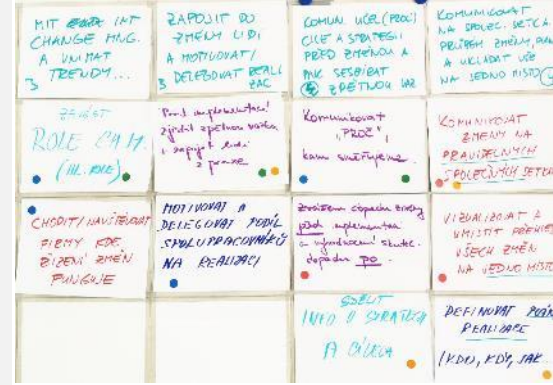 MÍT INT
CHANGE MNG.
A VNÍMAT
TRENDY...
3
ZAPOJIT DO
ZMĚNY LIDI
A MOTIVOVAT/
DELEGOVAT REALI
ZAC
3
KOMUN. ÚČEL (PROČ)
CÍLE A STRATEGII
PŘED ZMĚNOU A
PAK SESBÍRAT
4 ZPĚTNOU VAZ
KOMUNIKOVAT
NA SPOLEČ. SETKÁ
PRŮBĚH ZMĚNY,
A UKLÁDAT VŠE
NA JEDNO MÍSTO
ROLE CH.M.
(HL. ROLE)
Před implementací
zjistit zpětnou vazbu
a zapojit lidi
z praxe
Komunikovat
"PROČ",
kam směřujeme.
KOMUNIKOVAT
ZMĚNY NA
PRAVIDELNÝCH
SPOLEČNÝCH SETKÁ
CHODIT/NAVŠTĚVOVAT
FIRMY KDE
ŘÍZENÍ ZMĚN
FUNGUJE
MOTIVOVAT A
DELEGOVAT PODÍL
SPOLUPRACOVNÍKŮ
NA REALIZACI
dopadu změny
před implementací
a vyhodnocení skuteč.
dopadu po.
VIZUALIZOVAT A
UMÍSTIT PŘEHLED
VŠECH ZMĚN
NA JEDNO MÍSTO
SDÍLET
INFO O STRATEGII
A CÍLECH
DEFINOVAT
REALIZACE
(KDO, KDY, JAK